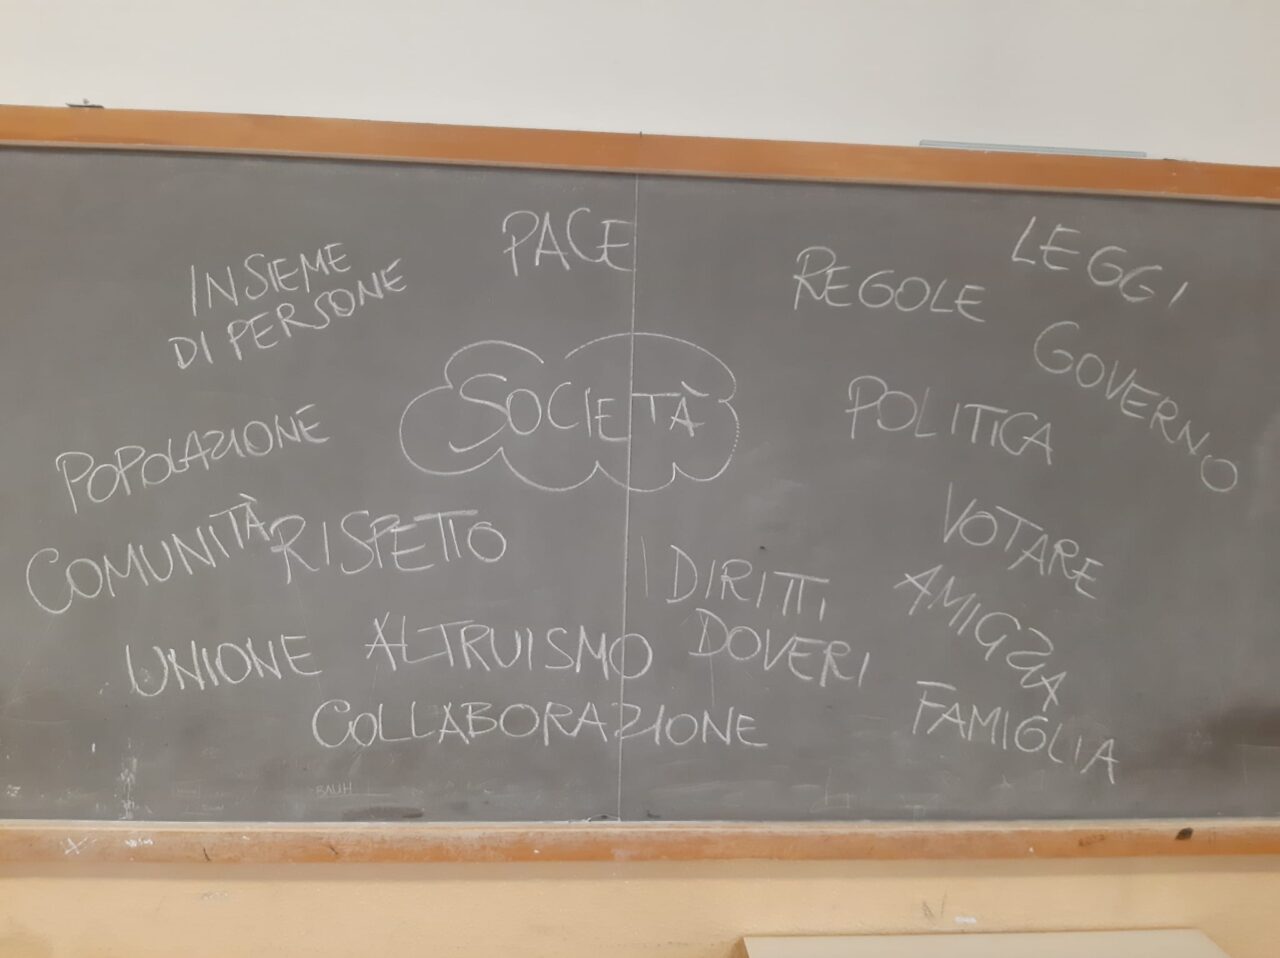 PACE
LEGGI
INSIEME
DI PERSONE
REGOLE
GOVERNO
SOCIETÀ
POLITICA
POPOLAZIONE
COMUNITÀ
RISPETTO
VOTARE
DIRITTI
DOVERI
AMICIZIA
UNIONE
ALTRUISMO
COLLABORAZIONE
FAMIGLIA
BAUH